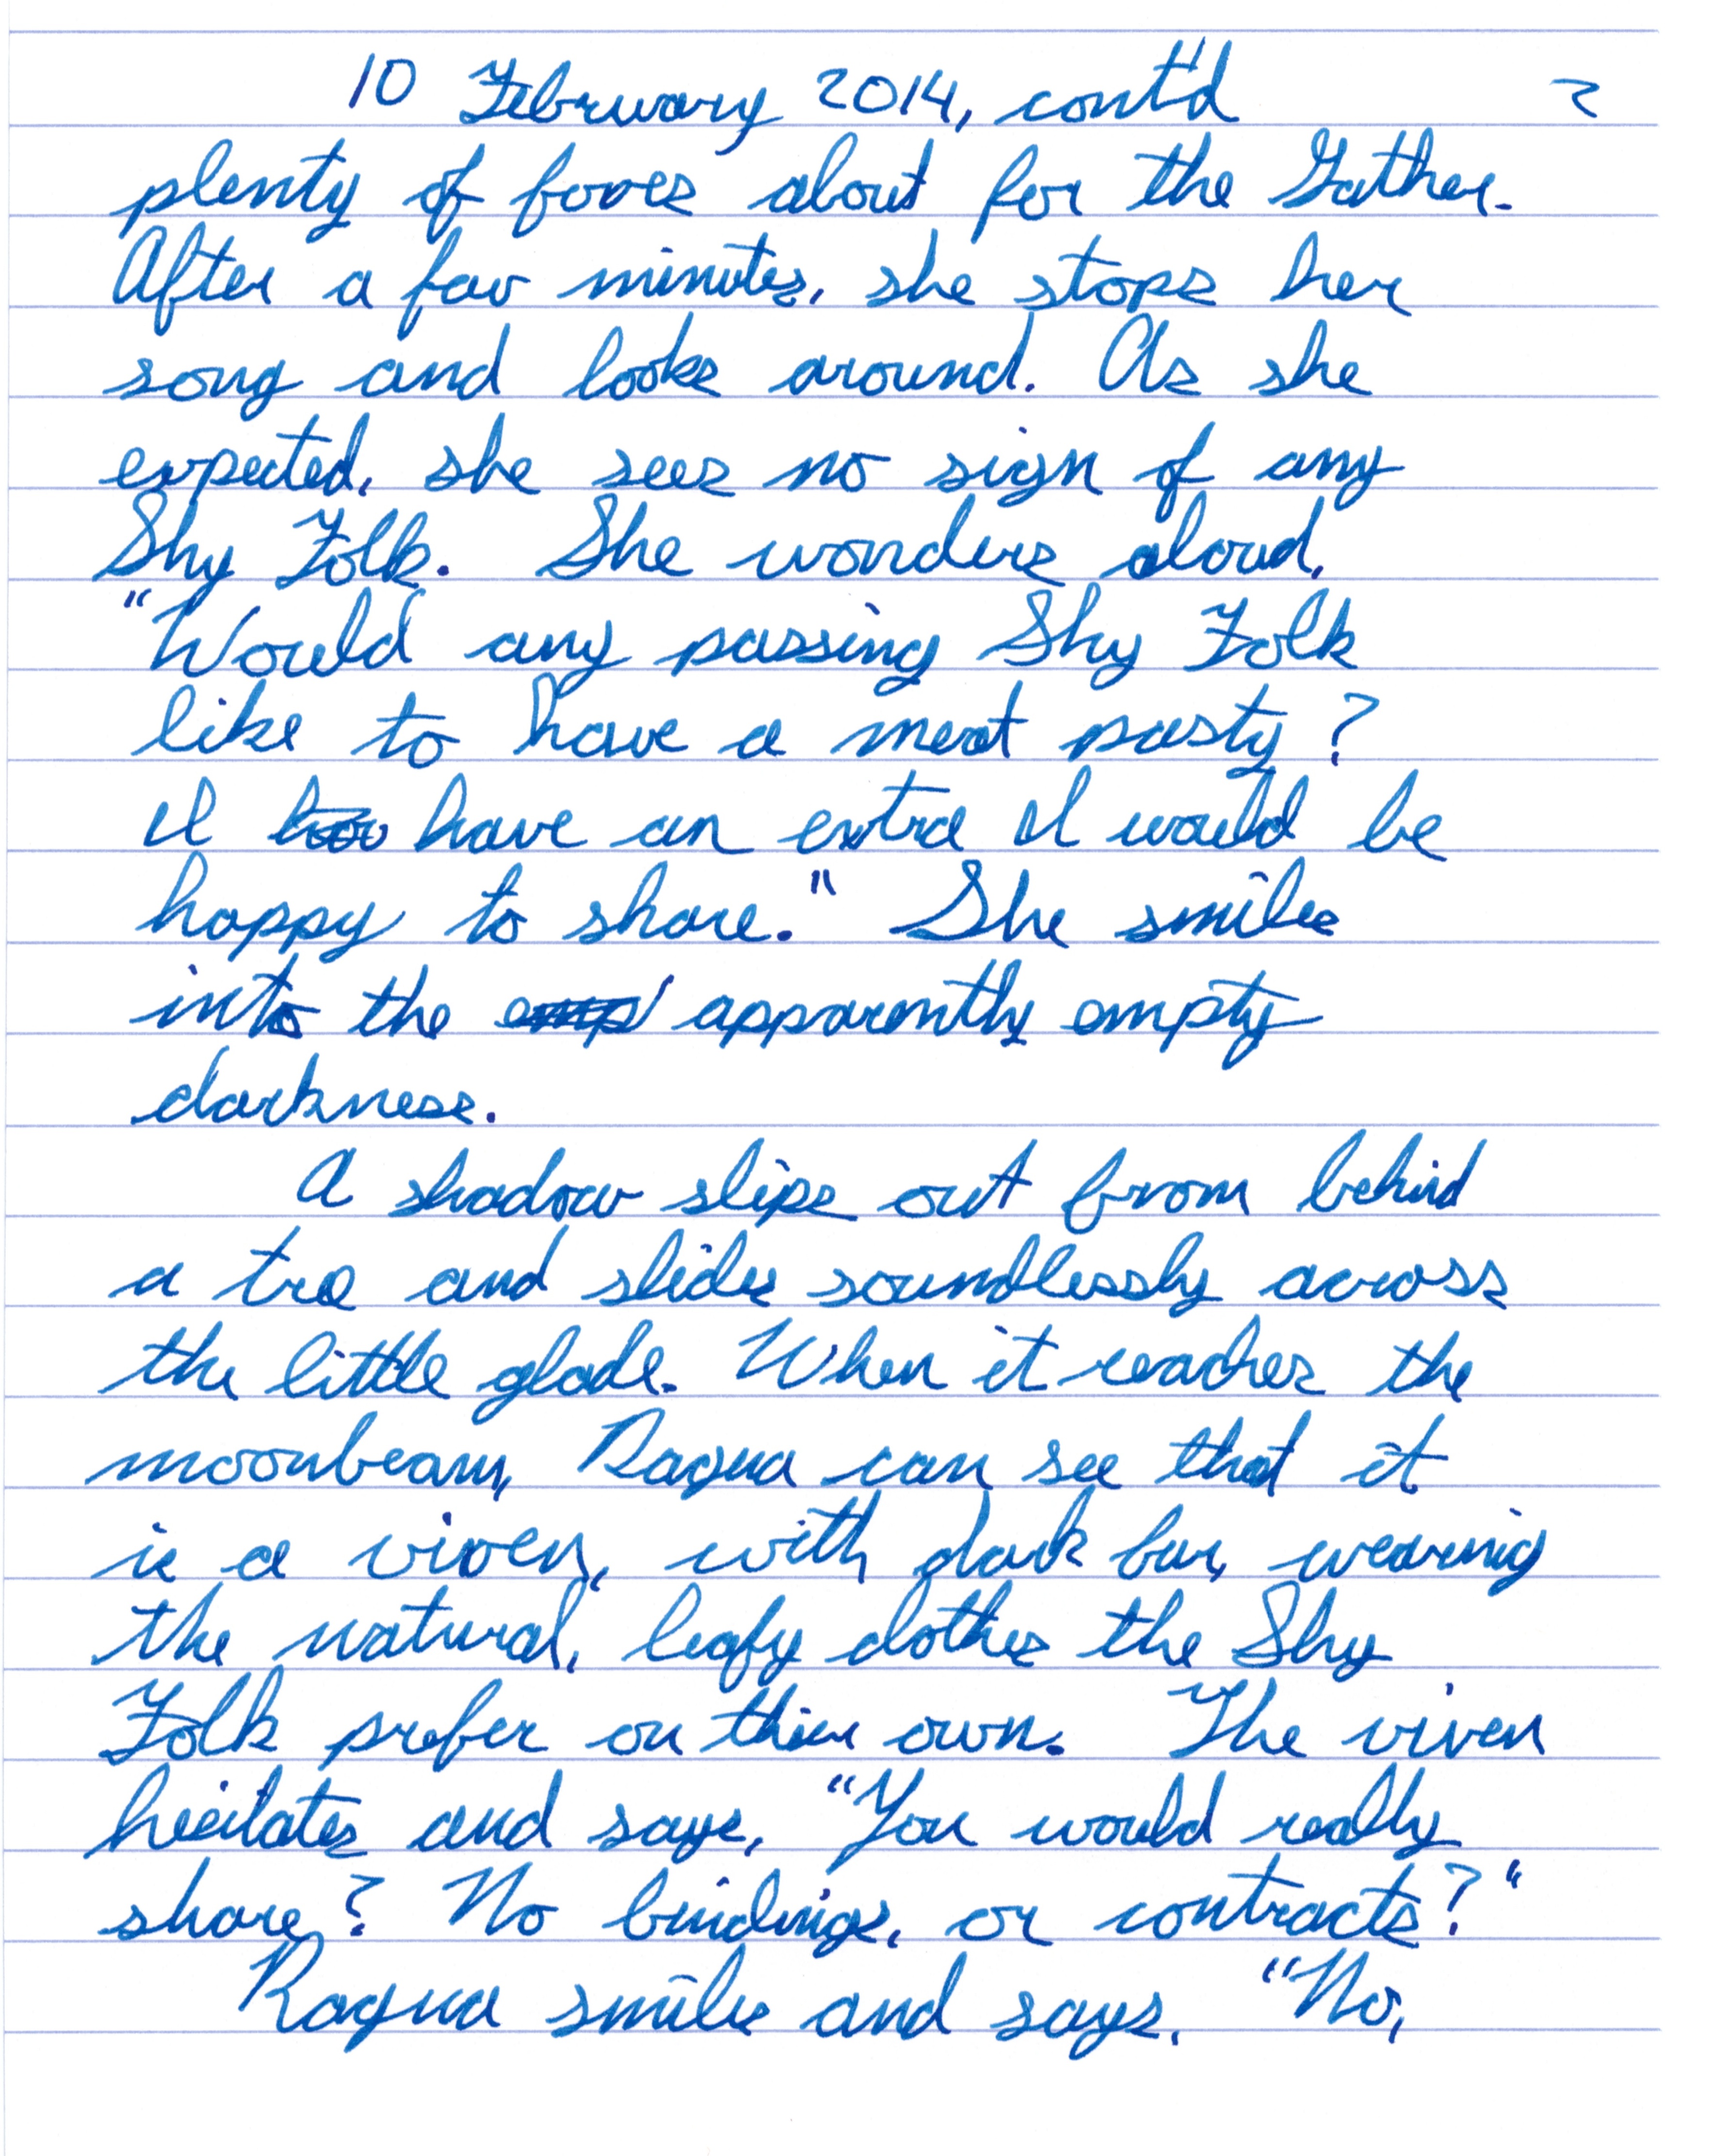 10 February 2014, cont'd 2
plenty of foxes about for the Gather.
After a few minutes, she stops her
song and looks around. As she
expected, she sees no sign of any
Shy Folk. She wonders aloud,
"Would any passing Shy Folk
like to have a meat pasty?
I have an extra I would be
happy to share." She smiles
into the apparently empty
darkness.
A shadow slips out from behind
a tree and slides soundlessly across
the little glade. When it reaches the
moonbeam, Raqua can see that it
is a vixen, with dark fur, wearing
the natural, leafy clothes the Shy
Folk prefer on their own. The vixen
hesitates and says, "You would really
share? No bindings, or contracts?"
Raqua smiles and says, "No,